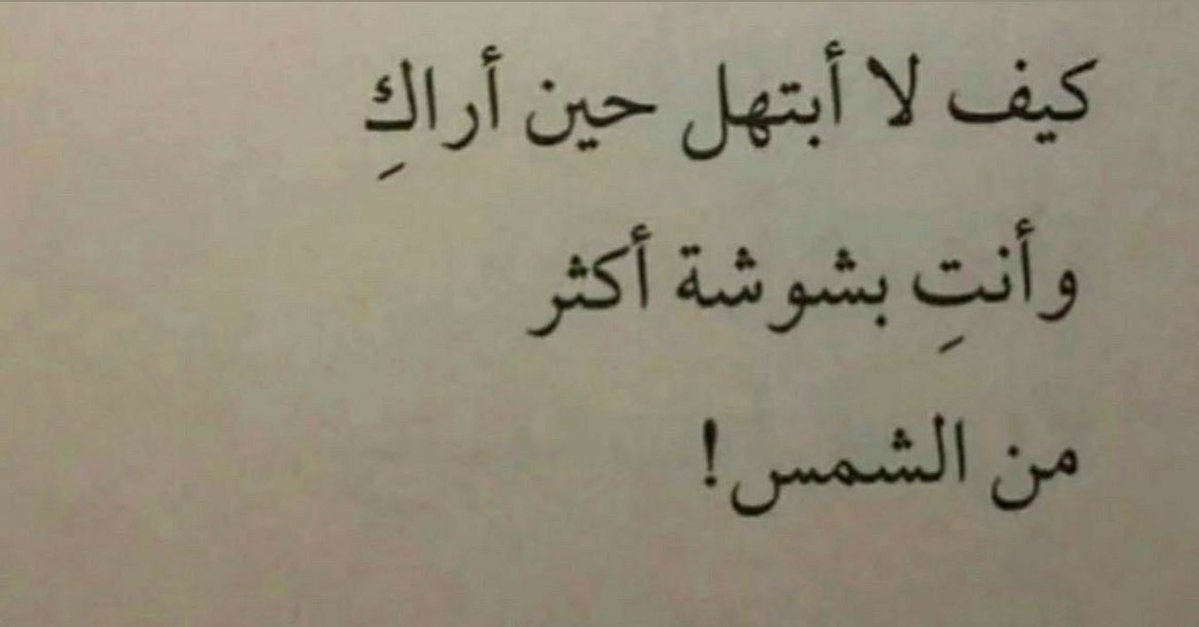 كيف لا أبتهل حين أراكِ
وأنتِ بشوشة أكثر
من الشمس!